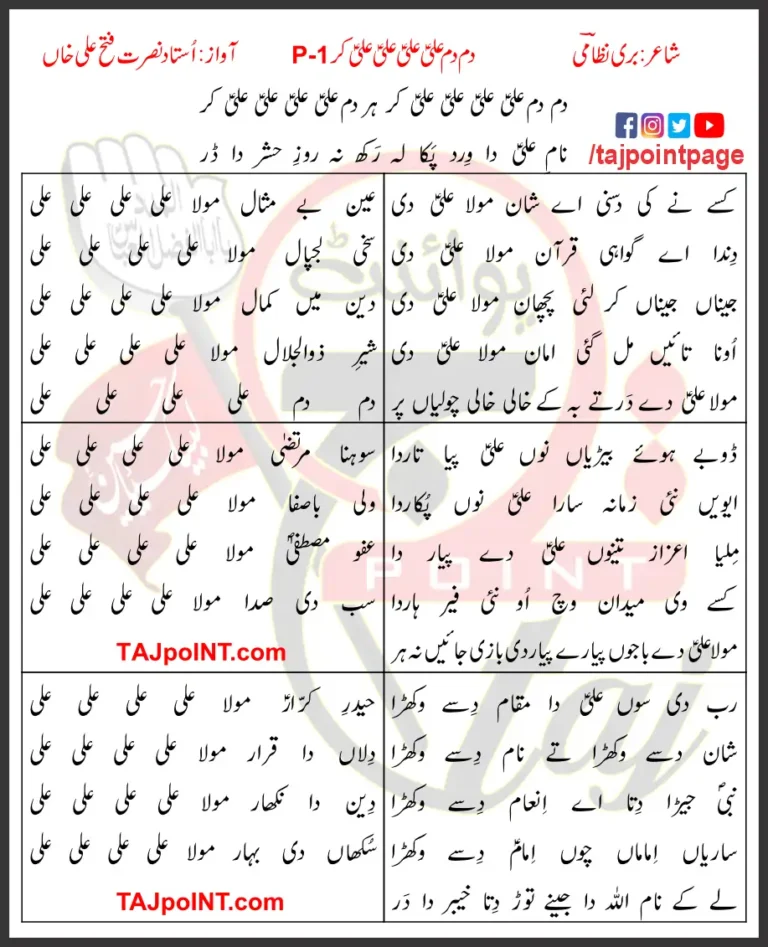 شاعر: بری نظامیؔ
دم دم علیؑ علیؑ علیؑ علیؑ کر P-1
آواز: اُستاد نصرت فتح علی خاں
دم دم علیؑ علیؑ علیؑ علیؑ کر ہر دم علیؑ علیؑ علیؑ علیؑ کر
نامِ علیؑ دا وِرد پَکا لہ رَکھ نہ روزِ حشر دا ڈر
/tajpointpage
کسے نے کی دسنی اے شان مولا علیؑ دی
دِندا اے گواہی قرآن مولا علیؑ دی
جیناں جیناں کر لئی پچھان مولا علیؑ دی
اُونا تائیں مل گئی امان مولا علیؑ دی
مولا علیؑ دے دَر تے بہ کے خالی خالی چولیاں پر
عین بے مثال مولا علی علی علی علی
سخی لجپال مولا علی علی علی علی
دین میں کمال مولا علی علی علی علی
شیرِ ذوالجلال مولا علی علی علی علی
دم دم علی علی علی علی
ڈوبے ہوئے بیڑیاں نوں علیؑ پیا تاردا
ایویں نئی زمانہ سارا علیؑ نوں پُکاردا
مِلیا اعزاز تینوں علیؑ دے پیار دا
کسے وی میدان وچ اُو نئی فیر ہاردا
مولا علیؑ دے باجوں پیارے پیار دی بازی جائیں نہ ہر
سوہنا مرتضیٰ مولا علی علی علی علی
ولی باصفا مولا علی علی علی علی
عفو مصطفیٰؐ مولا علی علی علی علی
سب دی صدا مولا علی علی علی علی
TAJpoINT.com
رب دی سوں علیؑ دا مقام دِسے وکھڑا
شان دسے وکھڑا تے نام دِسے وکھڑا
نبیؐ جیڑا دِتا اے اِنعام دِسے وکھڑا
ساریاں اِماماں چوں اِمامؑ دِسے وکھڑا
لے کے نام اللہ دا جینے توڑ دِتا خیبر دا دَر
حیدرِ کرّارؑ مولا علی علی علی علی
دِلاں دا قرار مولا علی علی علی علی
دِین دا نکھار مولا علی علی علی علی
سُکھاں دی بہار مولا علی علی علی علی
TAJpoINT.com
پوائنٹ
POINT
Taj